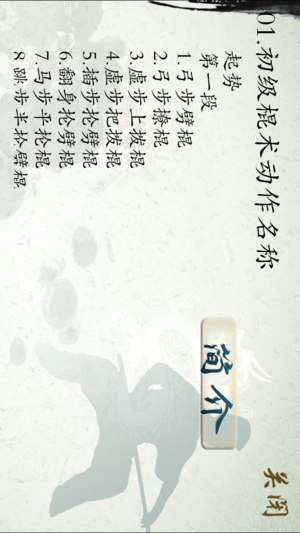 01.初级棍术动作名称
起势
第一段
1.弓步劈棍
2.弓步撩棍
3.虚步上拨棍
4.虚步把拨棍
5.插步抡劈棍
6.翻身抡劈棍
7.马步平抡棍
8.跳步半抡劈棍
简介
关闭